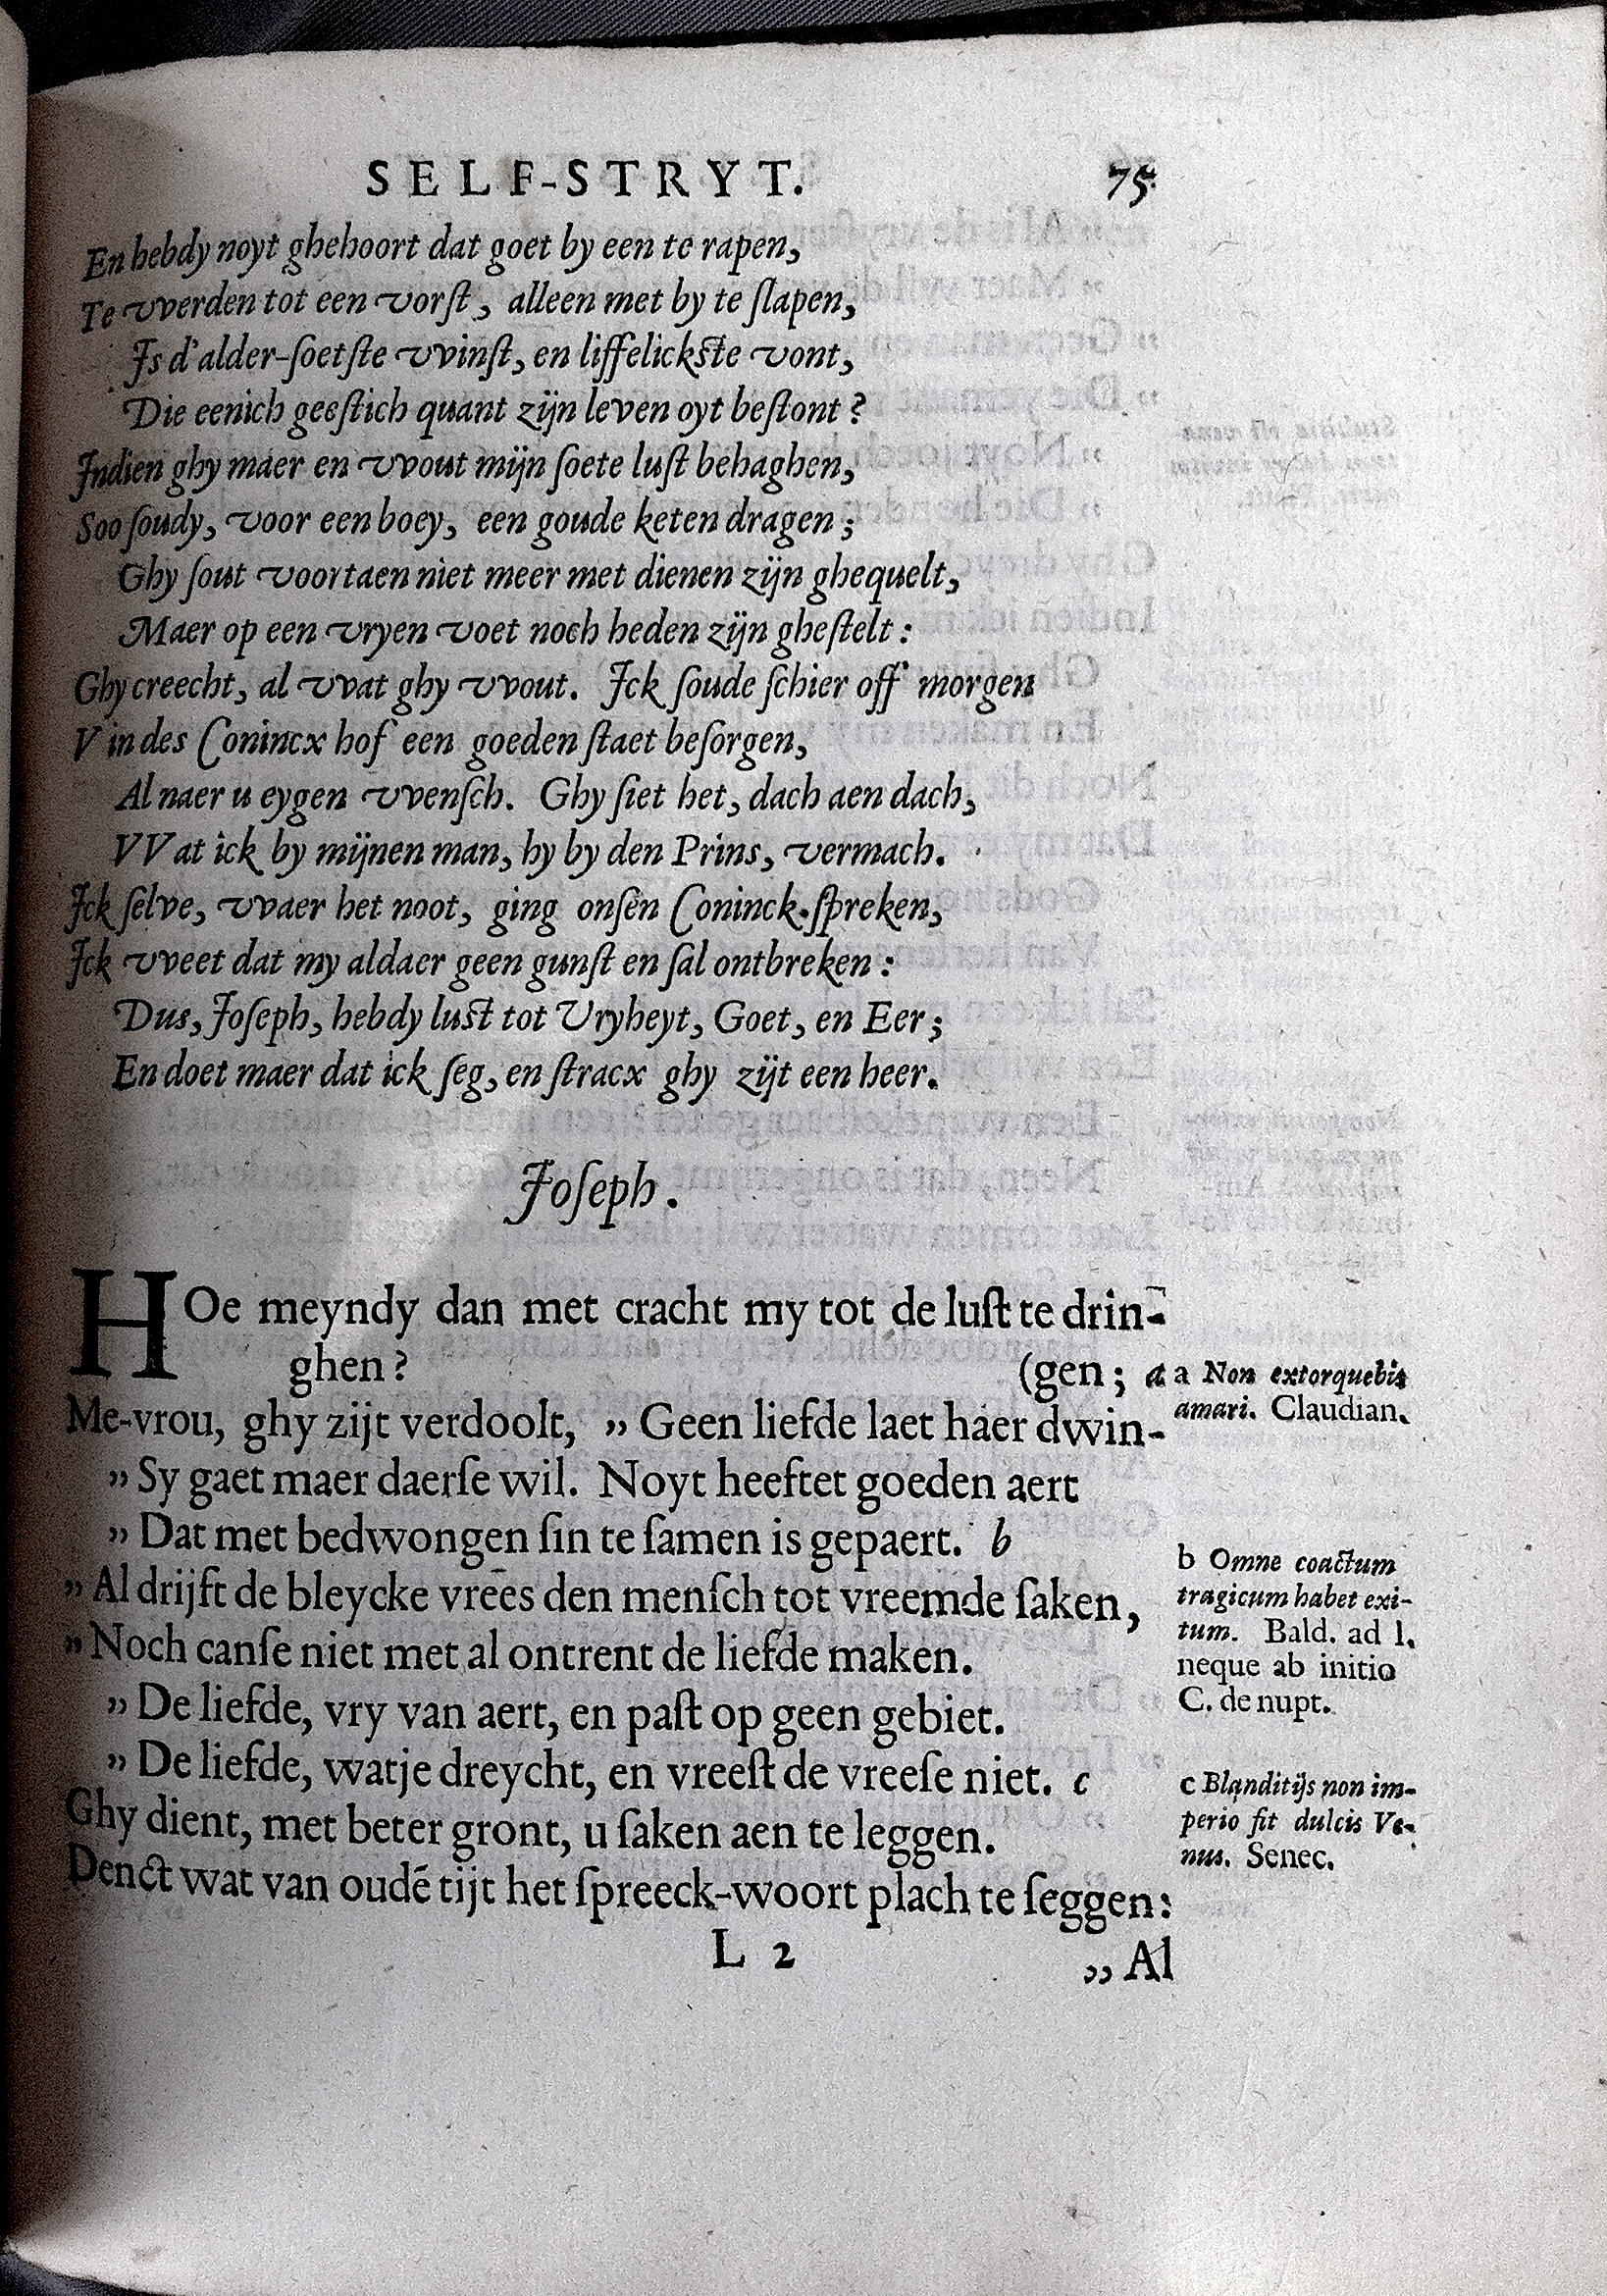 SELF-STRYT. 75.
En hebdy noyt ghehoort dat goet by een te rapen,
Te vverden tot een vorſt, alleen met by te ſlapen,
Is d'alder-ſoetſte vvinſt, en liffelickſte vont,
Die eenich geeſtich quant zijn leven oyt beſtont?
Indien ghy maer en vvout mijn ſoete luſt behaghen,
Soo ſoudy, voor een boey, een goude keten dragen;
Ghy ſout voortaen niet meer met dienen zijn ghequelt,
Maer op een vryen voet noch heden zijn gheſtelt:
Ghy creecht, al vvat ghy vvout. Ick ſoude ſchier off morgen
V in des Conincx hof een goeden ſtaet beſorgen,
Al naer u eygen vvenſch. Ghy ſiet het, dach aen dach,
VVat ick by mijnen man, hy by den Prins, vermach.
Ick ſelve, vvaer het noot, ging onſen Coninck ſpreken,
Ick vveet dat my aldaer geen gunſt en ſal ontbreken:
Dus, Joſeph, hebdy luſt tot Vryheyt, Goet, en Eer;
En doet maer dat ick ſeg, en ſtracx ghy zijt een heer.
Joſeph.
HOe meyndy dan met cracht my tot de luſt te drin-
ghen? (gen; a
Me-vrou, ghy zijt verdoolt, ,, Geen liefde laet haer dwin-
,, Sy gaet maer daerſe wil. Noyt heeftet goeden aert
,, Dat met bedwongen ſin te ſamen is gepaert. b
,, Al drijft de bleycke vrees den menſch tot vreemde ſaken,
,, Noch canſe niet met al ontrent de liefde maken.
,, De liefde, vry van aert, en paſt op geen gebiet.
,, De liefde, watje dreycht, en vreeſt de vreeſe niet. c
Ghy dient, met beter gront, u ſaken aen te leggen.
Denct wat van oudē tijt het ſpreeck-woort plach te ſeggen:
L 2 ,, Al
a Non extorquebis
amari. Claudian.
b Omne coactum
tragicum habet exi-
tum. Bald. ad l.
neque ab initio
C. de nupt.
c Blanditijs non im-
perio fit dulcis Ve-
nus. Senec.